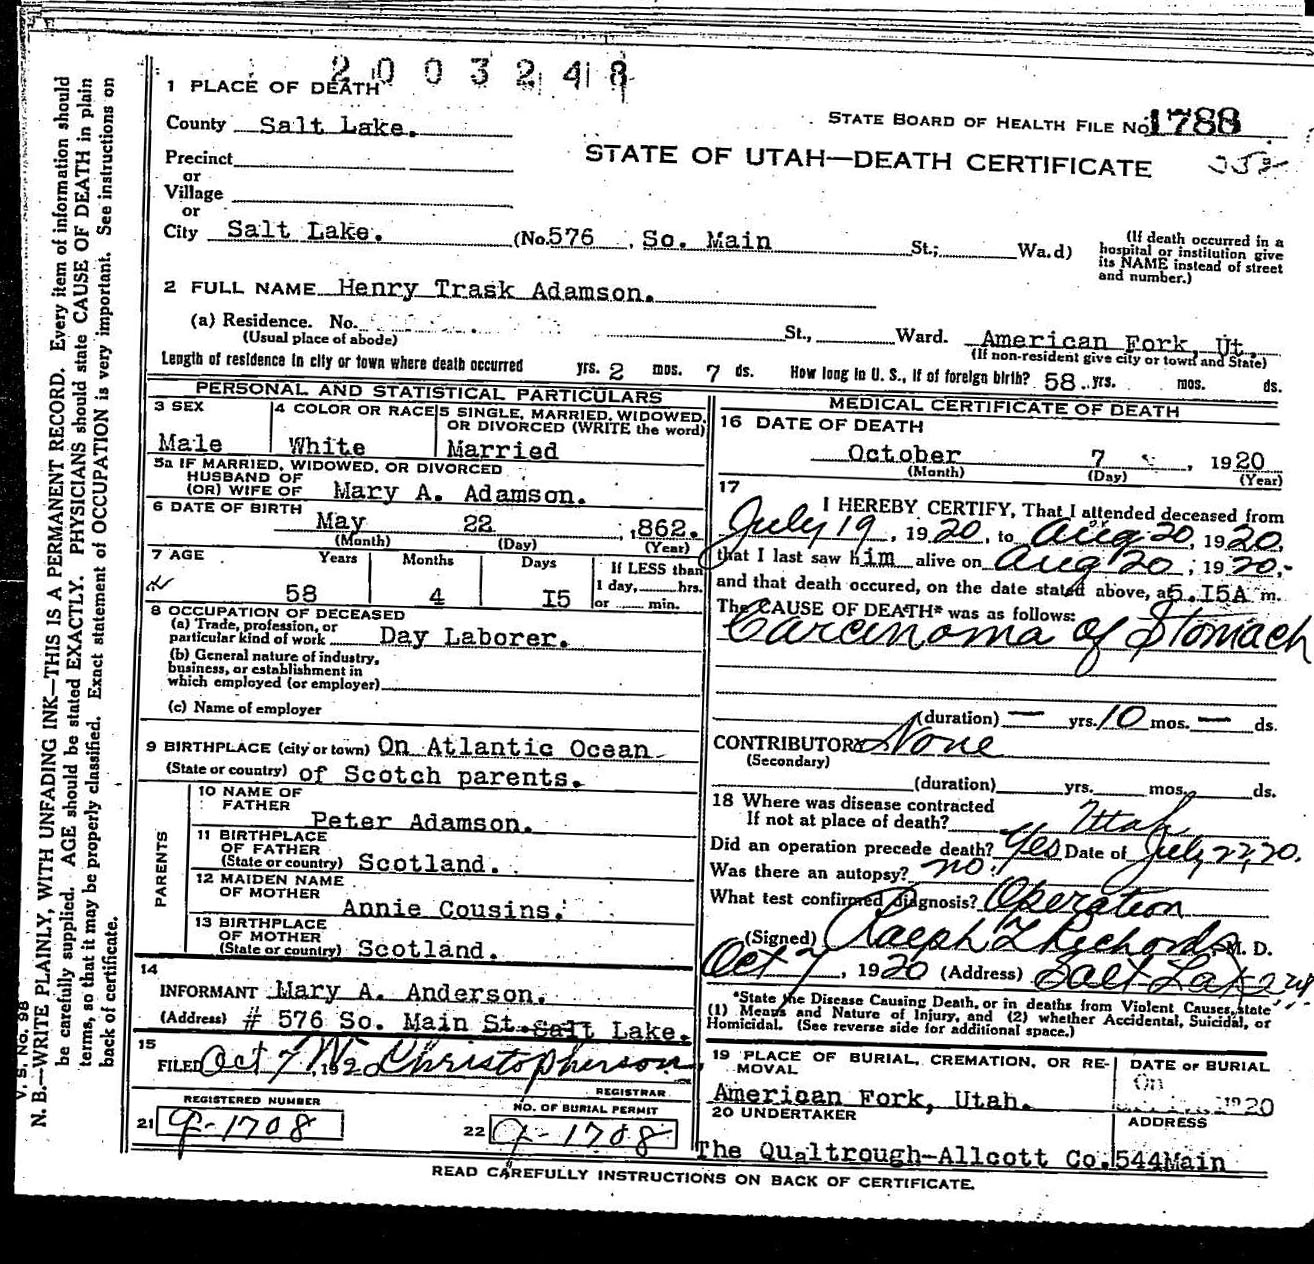 2003248
1 PLACE OF DEATH
STATE BOARD OF HEALTH FILE No. 1788
County Salt Lake.
STATE OF UTAH—DEATH CERTIFICATE
Precinct
or
Village
or
City Salt Lake. (No. 576 , So. Main St.; Wa.d)
(If death occurred in a
hospital or institution give
its NAME instead of street
and number.)
2 FULL NAME Henry Trask Adamson.
(a) Residence. No. St., Ward. American Fork, Ut.
(Usual place of abode) (If non-resident give city or town and State)
Length of residence in city or town where death occurred yrs. 2 mos. 7 ds. How long in U. S., if of foreign birth? 58 yrs. mos. ds.
PERSONAL AND STATISTICAL PARTICULARS
3 SEX
Male
4 COLOR OR RACE
White
5 SINGLE, MARRIED, WIDOWED,
OR DIVORCED (WRITE the word)
Married
5a IF MARRIED, WIDOWED, OR DIVORCED
HUSBAND OF
(OR) WIFE OF Mary A. Adamson.
6 DATE OF BIRTH
May 22 , 1862.
(Month) (Day) (Year)
7 AGE Years Months Days If LESS than
1 day, hrs.
58 4 I5 or min.
8 OCCUPATION OF DECEASED
(a) Trade, profession, or
particular kind of work Day Laborer.
(b) General nature of industry,
business, or establishment in
which employed (or employer)
(c) Name of employer
9 BIRTHPLACE (city or town) On Atlantic Ocean
(State or country) of Scotch parents.
PARENTS
10 NAME OF
FATHER
Peter Adamson.
11 BIRTHPLACE
OF FATHER
(State or country) Scotland.
12 MAIDEN NAME
OF MOTHER
Annie Cousins.
13 BIRTHPLACE
OF MOTHER
(State or country) Scotland.
14
INFORMANT Mary A. Anderson.
(Address) # 576 So. Main St. Salt Lake.
15
FILED Oct 7, 192 Christopherson
REGISTRAR
REGISTERED NUMBER
21 9-1708
NO. OF BURIAL PERMIT
22 9-1708
MEDICAL CERTIFICATE OF DEATH
16 DATE OF DEATH
October 7 , 1920
(Month) (Day) (Year)
17
I HEREBY CERTIFY, That I attended deceased from
July 19, 1920, to Aug 20, 1920,
that I last saw him alive on Aug 20, 1920,
and that death occured, on the date stated above, at 5.I5A m.
The CAUSE OF DEATH* was as follows:
Carcinoma of Stomach
(duration) — yrs. 10 mos. — ds.
CONTRIBUTORY None
(Secondary)
(duration) yrs. mos. ds.
18 Where was disease contracted
If not at place of death? Utah
Did an operation precede death? Yes Date of July 22, 20.
Was there an autopsy? no.
What test confirmed diagnosis? Operation
(Signed) Ralph T Richards M. D.
Oct 7, 1920 (Address) Salt Lake City
*State the Disease Causing Death, or in deaths from Violent Causes, state
(1) Means and Nature of Injury, and (2) whether Accidental, Suicidal, or
Homicidal. (See reverse side for additional space.)
19 PLACE OF BURIAL, CREMATION, OR RE-
MOVAL
American Fork, Utah.
DATE OF BURIAL
1920
20 UNDERTAKER
The Qualtrough-Allcott Co.
ADDRESS
544Main
READ CAREFULLY INSTRUCTIONS ON BACK OF CERTIFICATE.
V. S. No. 98
N. B.—WRITE PLAINLY, WITH UNFADING INK—THIS IS A PERMANENT RECORD. Every item of information should
be carefully supplied. AGE should be stated EXACTLY. PHYSICIANS should state CAUSE OF DEATH in plain
terms, so that it may be properly classified. Exact statement of OCCUPATION is very important. See instructions on
back of certificate.